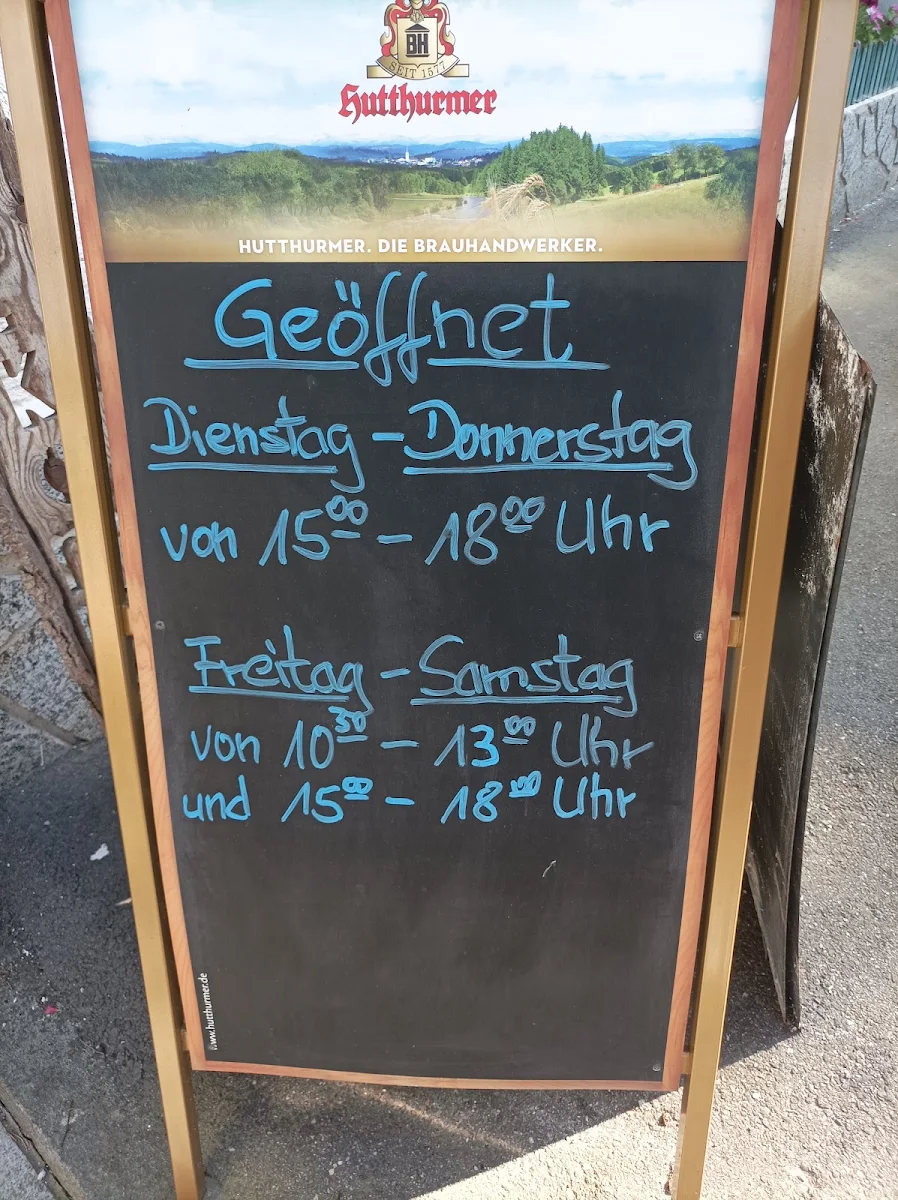 BH
SEIT 1577
Hutthurmer
HUTTHURMER. DIE BRAUHANDWERKER.
Geöffnet
Dienstag - Donnerstag
von 1500 - 1800 Uhr
Freitag - Samstag
von 1030 - 1300 Uhr
und 1500 - 1800 Uhr
www.hutthurmer.de